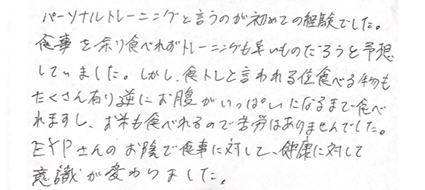 パーソナルトレーニングと言うのが初めての経験でした。
食事を余り食べれずトレーニングも辛いものだろうと予想
していました。しかし、食トレと言われる位食べる物も
たくさん有り逆にお腹がいっぱいになるまで食べ
れますし、お米も食べれるので苦労はありませんでした。
EYPさんのお陰で食事に対して、健康に対して
意識が変わりました。